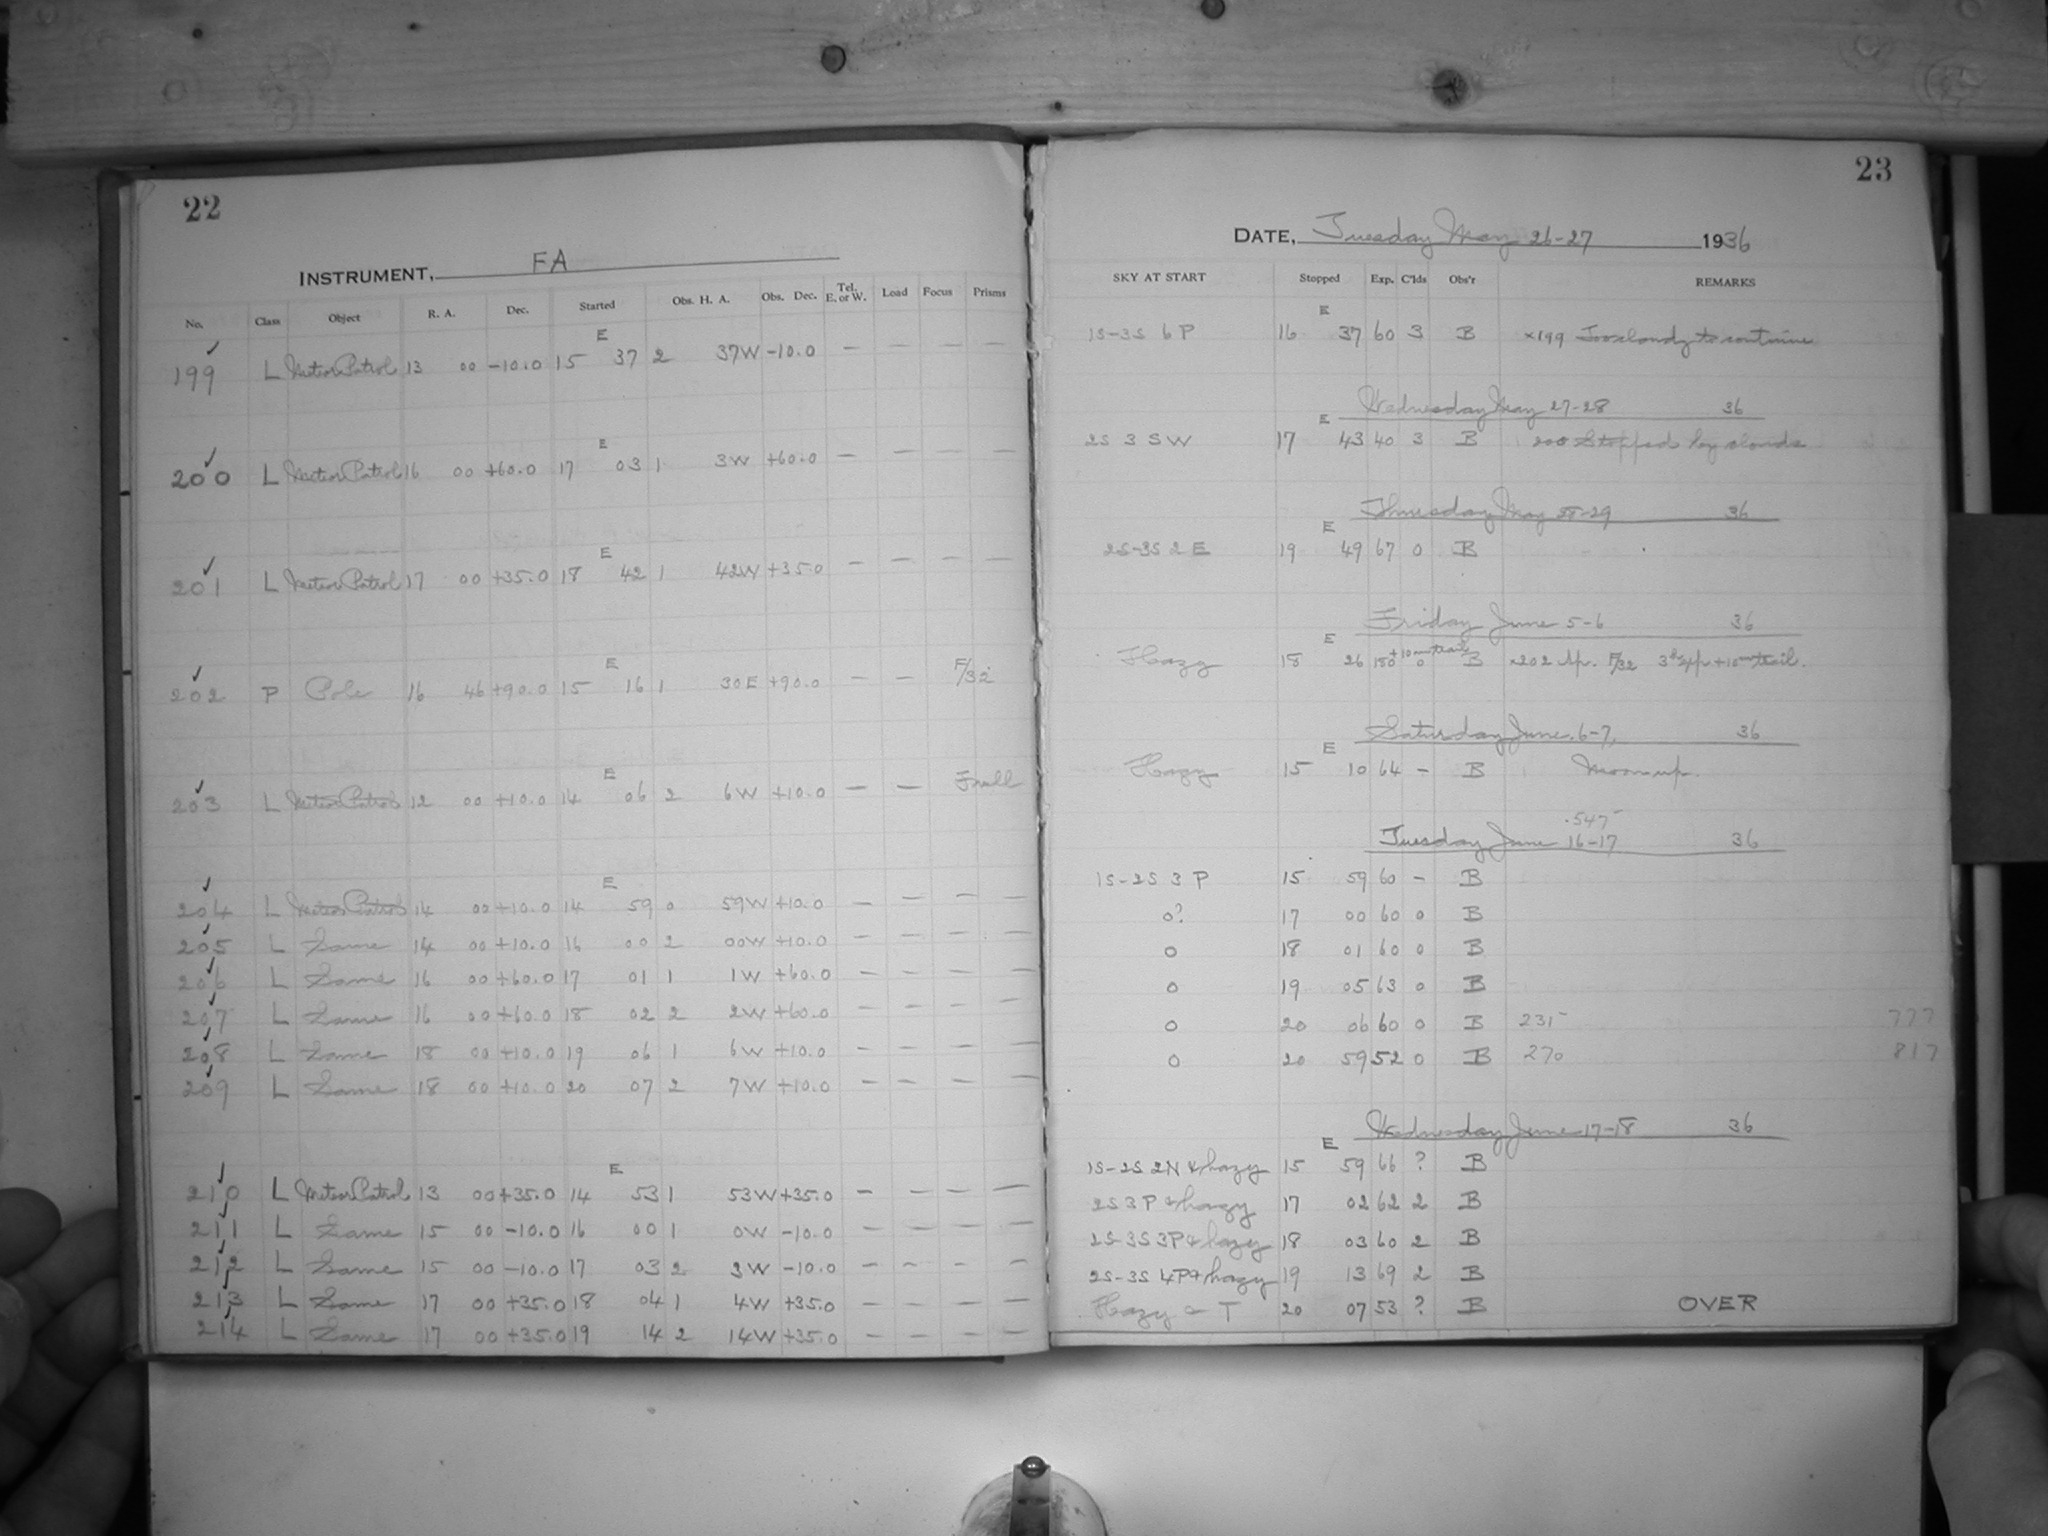 22
INSTRUMENT, FA
No. Class Object R. A. Dec. Started Obs. H. A. Obs. Dec. Tel. E. or W. Load Focus Prisms
E
199 L Meteor Patrol 13 00 -10.0 15 37 2 37W -10.0 — — — —
E
200 L Meteor Patrol 16 00 +60.0 17 03 1 3W +60.0 — — — —
E
201 L Meteor Patrol 17 00 +35.0 18 42 1 42W +35.0 — — — —
E
202 P Pole 16 46 +90.0 15 16 1 30E +90.0 — — F/32
E
203 L Meteor Patrol 12 00 +10.0 14 06 2 6W +10.0 — — Full
E
204 L Meteor Patrol 14 00 +10.0 14 59 0 59W +10.0 — — — —
205 L Same 14 00 +10.0 16 00 2 00W +10.0 — — — —
206 L Same 16 00 +60.0 17 01 1 1W +60.0 — — — —
207 L Same 16 00 +60.0 18 02 2 2W +60.0 — — — —
208 L Same 18 00 +10.0 19 06 1 6W +10.0 — — — —
209 L Same 18 00 +10.0 20 07 2 7W +10.0 — — — —
E
210 L Meteor Patrol 13 00 +35.0 14 53 1 53W +35.0 — — — —
211 L Same 15 00 -10.0 16 00 1 0W -10.0 — — — —
212 L Same 15 00 -10.0 17 03 2 3W -10.0 — — — —
213 L Same 17 00 +35.0 18 04 1 4W +35.0 — — — —
214 L Same 17 00 +35.0 19 14 2 14W +35.0 — — — —
23
DATE, Tuesday May 26-27 1936
SKY AT START Stopped Exp. C'lds Obs'r REMARKS
E
1S-3S 6P 16 37 60 3 B ×199 Too cloudy to continue
Wednesday May 27-28 36
E
2S 3 SW 17 43 40 3 B 200 Stopped by clouds
Thursday May 28-29 36
E
2S-3S 2 E 19 49 67 0 B
Friday June 5-6 36
E
Hazy 18 26 180 +10m trail 0 B ×202 Ap. F/32 3h exp +10m trail.
Saturday June 6-7, 36
E
Hazy 15 10 64 – B Moon up.
.547
Tuesday June 16-17 36
1S-2S 3 P 15 59 60 – B
0? 17 00 60 0 B
0 18 01 60 0 B
0 19 05 63 0 B
0 20 06 60 0 B 235 777
0 20 59 52 0 B 270 817
Wednesday June 17-18 36
E
1S-2S 2N & hazy 15 59 66 ? B
2S 3 P & hazy 17 02 62 2 B
2S-3S 3P & hazy 18 03 60 2 B
2S-3S 4P & hazy 19 13 69 2 B
Hazy T 20 07 53 ? B
OVER